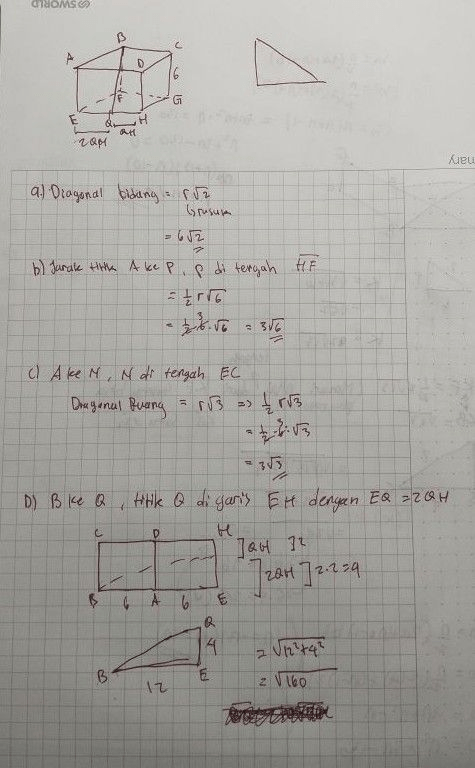 SWORLD
B
A
C
D
6
F
G
E
Q
H
2QH
QH
a.) Diagonal bidang = r√2
↳ rusuk
= 6√2
b) Jarak titik A ke P, P di tengah HF
= 1/2 r√6
= 1/2 . 6 . √6 = 3√6
3
c) A ke N, N di tengah EC
Diagonal Ruang = r√3 => 1/2 r√3
= 1/2 . 6 . √3
3
= 3√3
D) B ke Q, titik Q di garis EH dengan EQ = 2QH
C D H
] QH ] 2
] 2QH ] 2.2=4
B 6 A 6 E
Q
4
B E
12
= √12²+4²
= √160